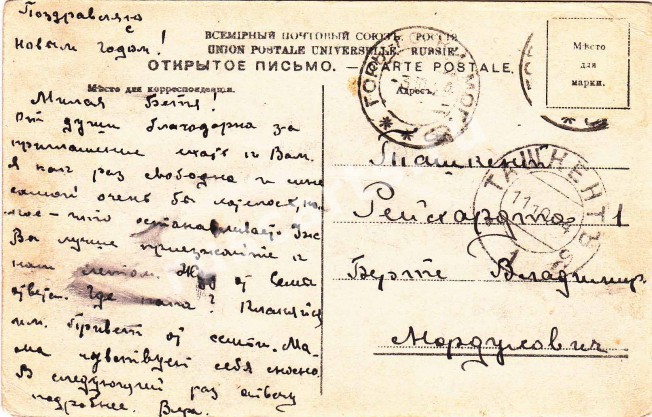 Поздравляю
с
новым годом!
ВСЕМІРНЫЙ ПОЧТОВЫЙ СОЮЗЪ. РОССІЯ
UNION POSTALE UNIVERSELLE. RUSSIE
ОТКРЫТОЕ ПИСЬМО. — CARTE POSTALE.
Мѣсто для корреспонденціи.
Адресъ.
Мѣсто
для
марки.
Милая Бетя!
От души благодарна за
приглашение ехать к Вам.
Я как раз свободна и мне
самой очень бы хотелось, но
кое-что останавливает. Уж
Вы лучше приезжайте к
нам летом. Жду от Вас
ответа. Где папа? Кланяйся
им. Привет от семьи. Ма-
ма чувствует себя сносно.
В следующий раз отвечу
подробнее. Вера.
Ташкент
Рейхардта 1
Берте Владимир.
Мордухович
ТАШКЕНТЪ